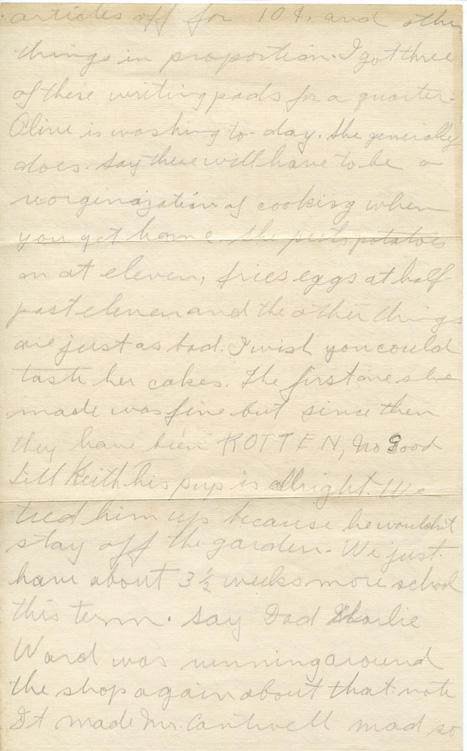 articles off for 10¢. and other
things in proportion. I got three
of these writing pads for a quarter.
Aline is washing to-day. She generally
does. Say there will have to be a
reorginazation of cooking when
you get home. She puts potatoes
on at eleven, fries eggs at half
past eleven and the other things
are just as bad. I wish you could
taste her cakes. The first one she
made was fine but since then
they have been ROTTEN, no Good
Tell Keith his pup is allright. We
tied him up because he wouldn't
stay off the garden. We just
have about 3½ weeks more school
this term. Say Dad Charlie
Ward was running around
the shop again about that note
It made Mr. Cantwell mad so